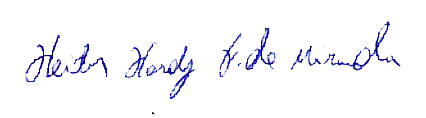 Heitor Hardy F. de Miranda